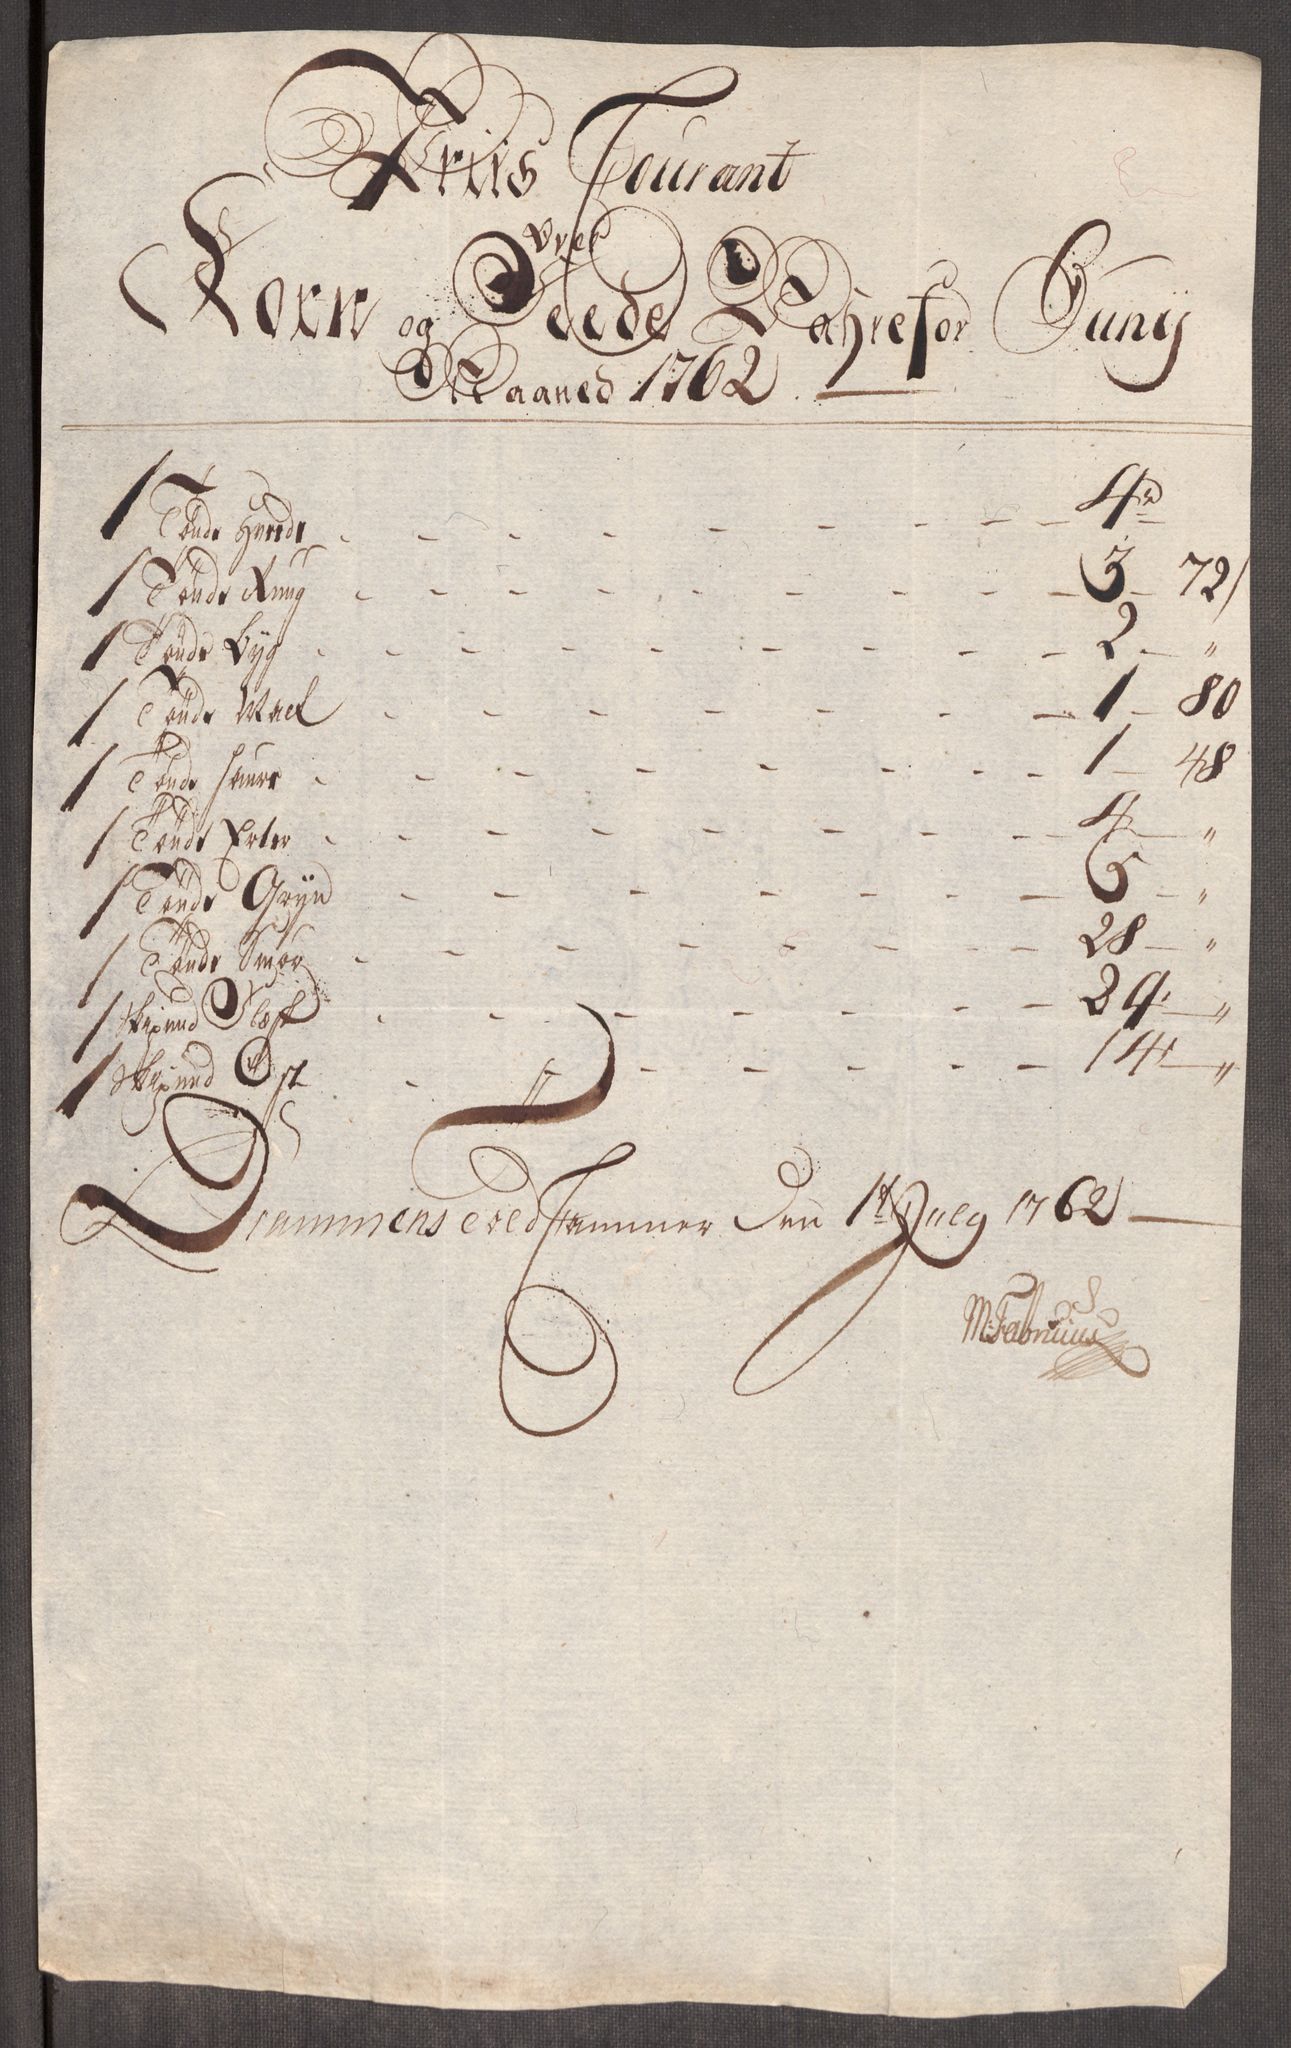 Priis Courant
over
Korn og Feede Wahre for Juny
Maaned 1762.
1 Tønde Hvede - 4 rd
1 Tønde Rug - 3 - 72 s
1 Tønde Byg - 2 - "
1 Tønde Malt - 1 - 80
1 Tønde Haure - 1 - 48
1 Tønde Erter - 4 - "
1 Tønde Gryn - 6 - "
1 Tønde Smør - 28 - "
1 Skpund Flæsk - 24 - "
1 Skpund Ost - 14 - "
Drammens Toldkammer den 1t July 1762
M: Fabricius